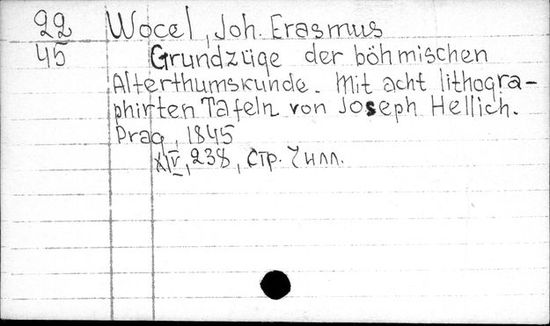 22 Wocel, Joh. Erasmus
45 Grundzüge der böhmischen
Alterthumskunde. Mit acht lithogra-
phirten Tafeln von Joseph Hellich.
Prag, 1845
XIV, 238, стр. 7 илл.